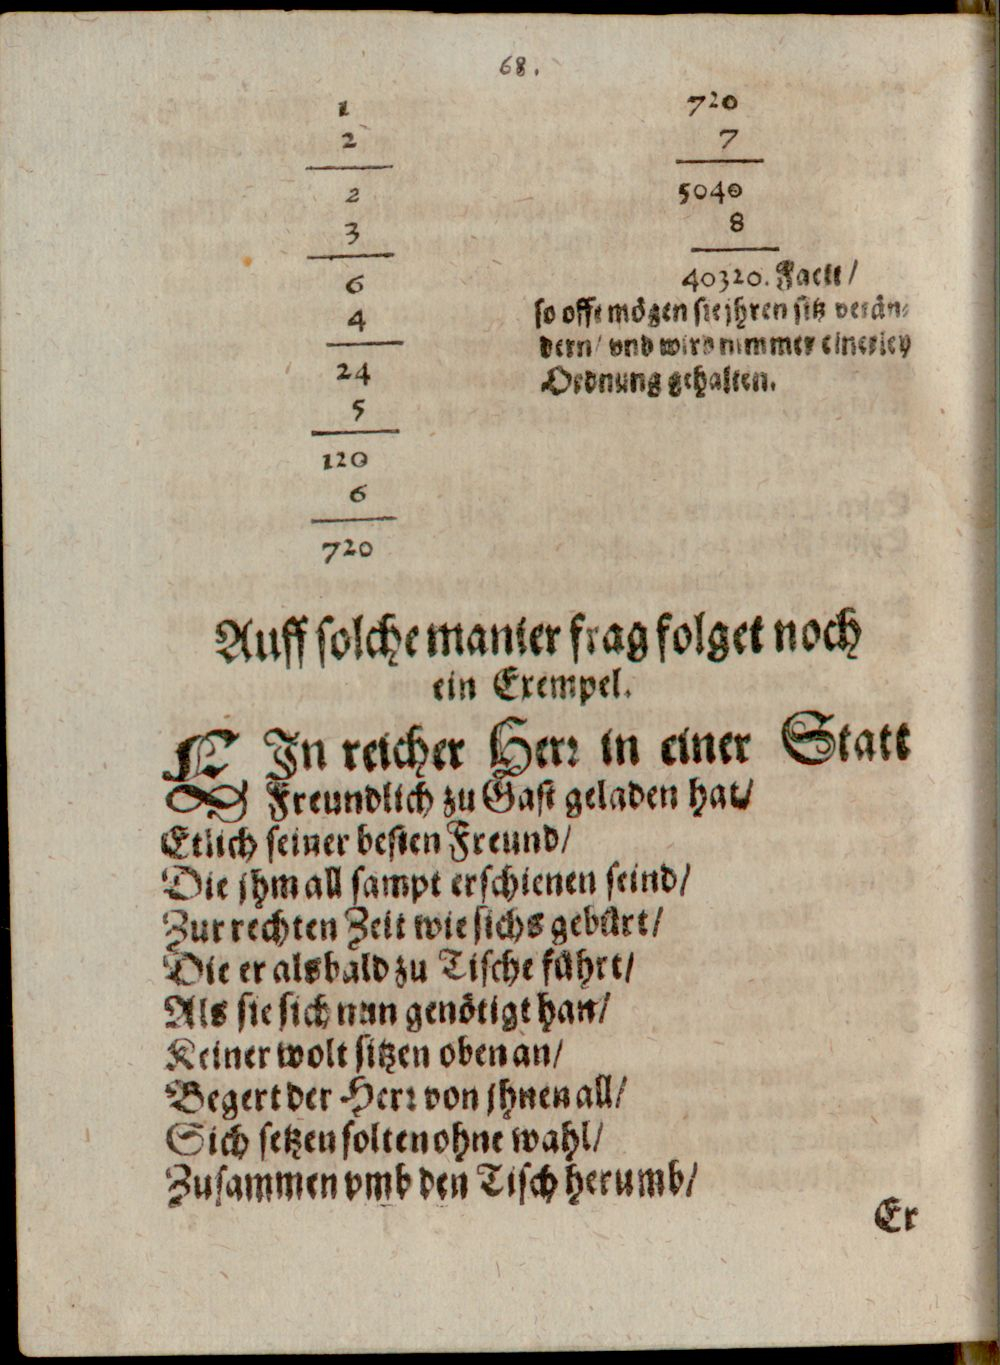 68.
1
2
2
3
6
4
24
5
120
6
720
720
7
5040
8
40320. Facit /
so offt mögen sie jhren sitz verän-
dern / vnd wird nimmer einerley
Ordnung gehalten.
Auff solche manier frag folget noch
ein Exempel.
EIn reicher Herr in einer Statt
Freundlich zu Gast geladen hat /
Etlich seiner besten Freund /
Die jhm all sampt erschienen seind /
Zur rechten Zeit wie sichs gebürt /
Die er alsbald zu Tische führt /
Als sie sich nun genötigt han /
Keiner wolt sitzen oben an /
Begert der Herr von jhnen all /
Sich setzen solten ohne wahl /
Zusammen vmb den Tisch herumb /
Er